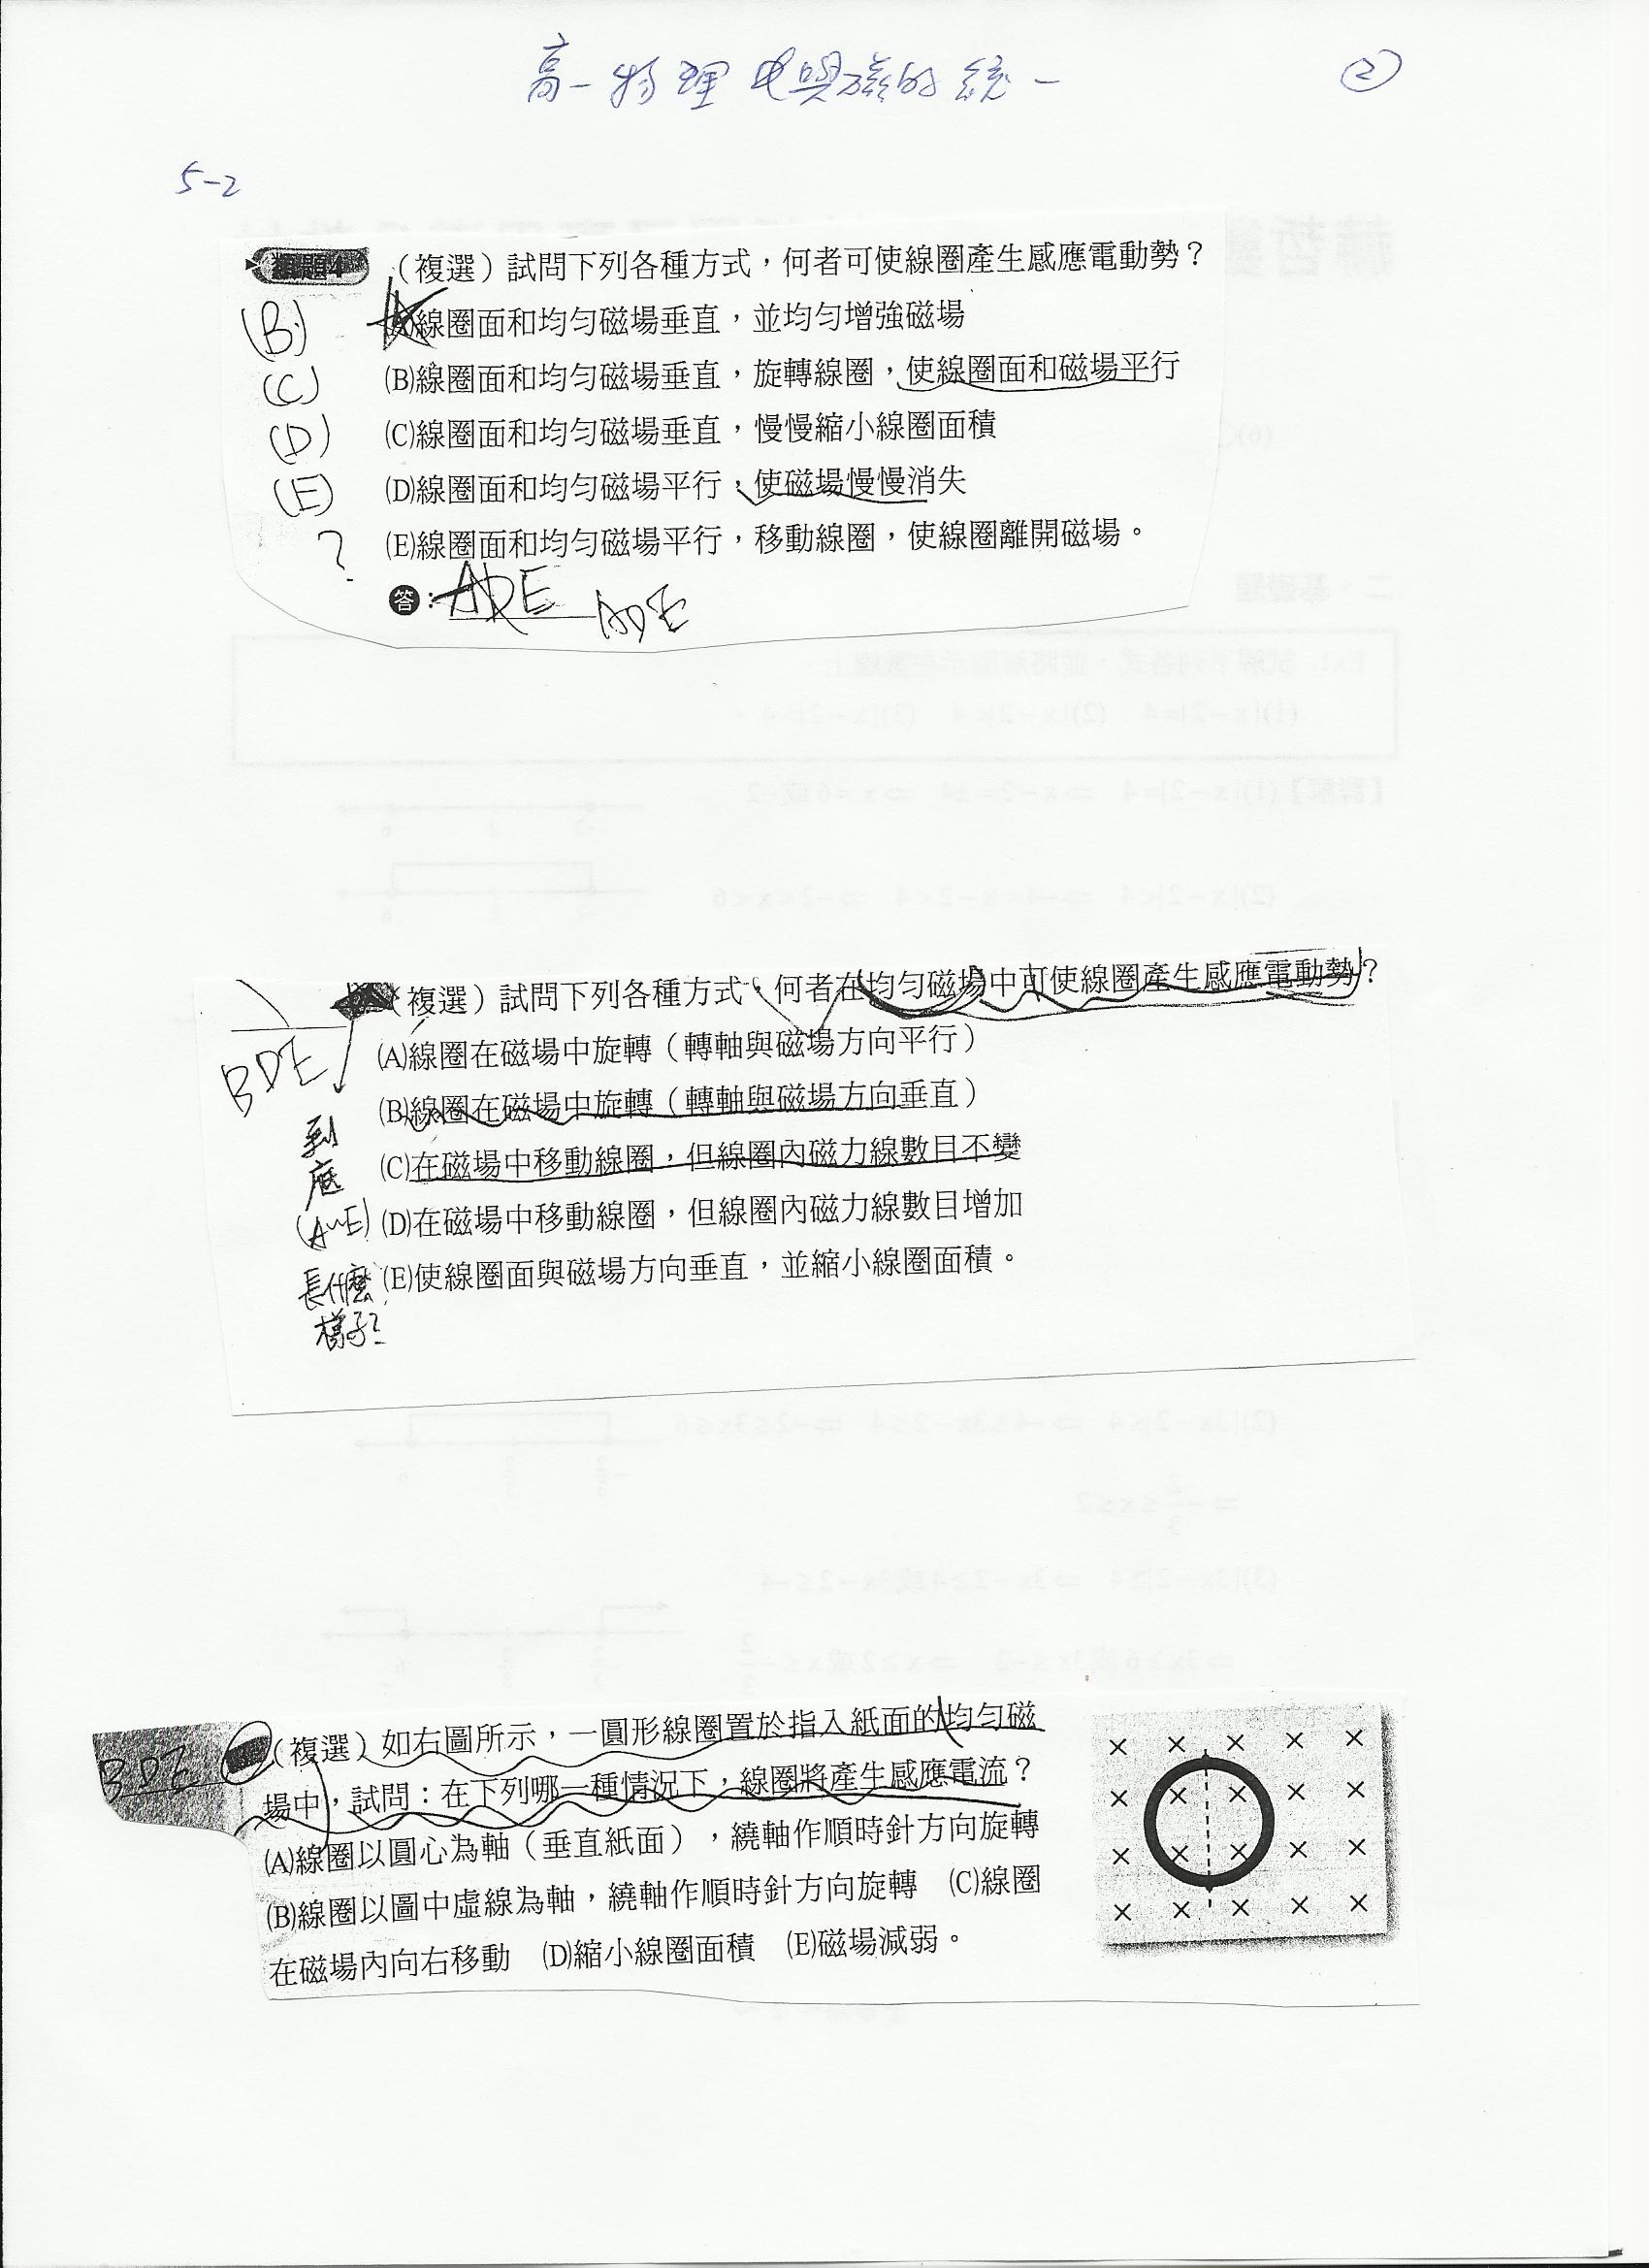 高一物理 电與磁的統一 ②
5-2
類題4 （複選）試問下列各種方式，何者可使線圈產生感應電動勢？
(B) (A)線圈面和均勻磁場垂直，並均勻增強磁場
(C) (B)線圈面和均勻磁場垂直，旋轉線圈，使線圈面和磁場平行
(D) (C)線圈面和均勻磁場垂直，慢慢縮小線圈面積
(E) (D)線圈面和均勻磁場平行，使磁場慢慢消失
? (E)線圈面和均勻磁場平行，移動線圈，使線圈離開磁場。
答：ADE ADE
（複選）試問下列各種方式，何者在均勻磁場中可使線圈產生感應電動勢？
BDE (A)線圈在磁場中旋轉（轉軸與磁場方向平行）
(B)線圈在磁場中旋轉（轉軸與磁場方向垂直）
到底 (C)在磁場中移動線圈，但線圈內磁力線數目不變
(A~E) (D)在磁場中移動線圈，但線圈內磁力線數目增加
長什麼樣子? (E)使線圈面與磁場方向垂直，並縮小線圈面積。
BDE （複選）如右圖所示，一圓形線圈置於指入紙面的均勻磁
場中，試問：在下列哪一種情況下，線圈將產生感應電流？
(A)線圈以圓心為軸（垂直紙面），繞軸作順時針方向旋轉
(B)線圈以圖中虛線為軸，繞軸作順時針方向旋轉 (C)線圈
在磁場內向右移動 (D)縮小線圈面積 (E)磁場減弱。